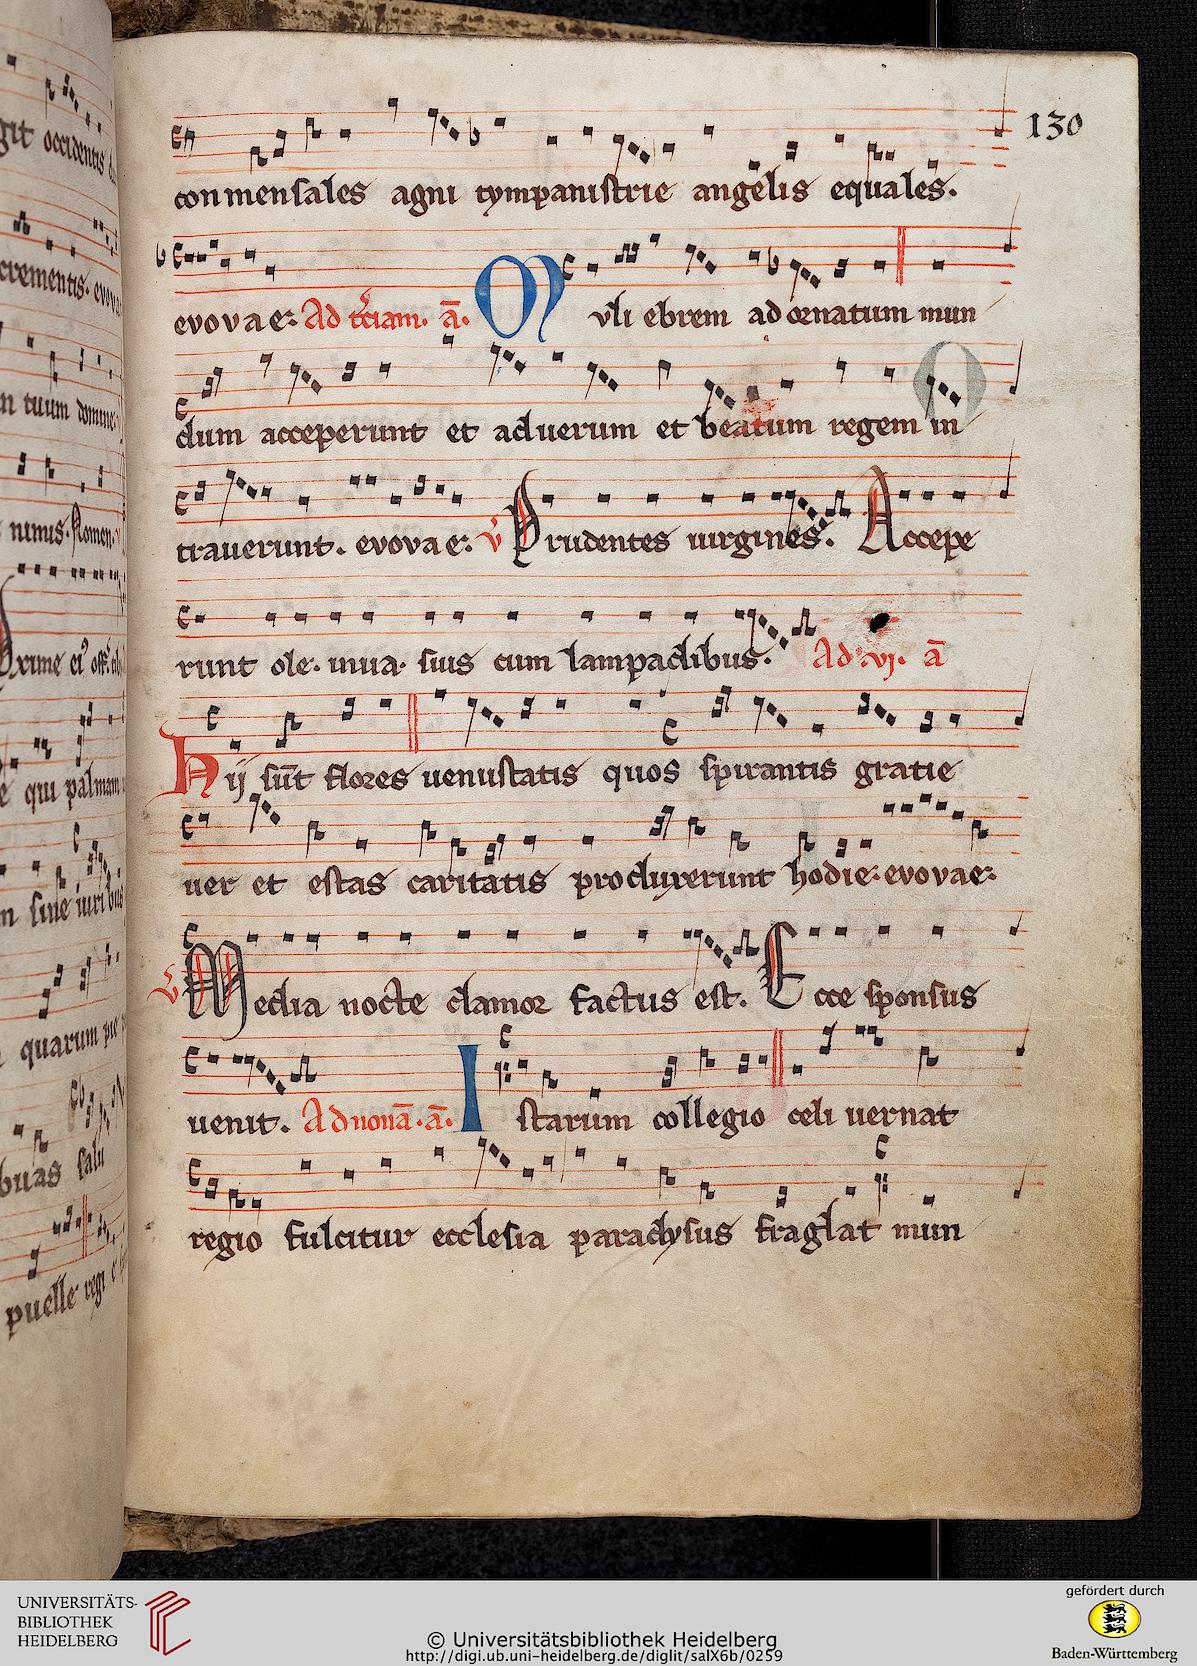 130
conmensales agni tympanistrie angelis equales.
evovae: Ad terciam. a. Mvli ebrem ad ornatum mun
dum acceperunt et aduerum et beatum regem in
trauerunt. evovae: v Prudentes uirgines. Accepe
runt ole. inua. suis cum lampadibus. Ad vj. a
Hij sunt flores uenustatis quos spirantis gratie
uer et estas caritatis produxerunt hodie: evovae:
v Media nocte clamor factus est. Ecce sponsus
uenit. Ad nonā. ā. Istarum collegio celi uernat
regio fulcitur ecclesia paradysus fraglat mun
git occidentis
crementis. evova
m tuum domine
nimis. Nomen.
qui palmam
quarum pie
puelle regi
UNIVERSITÄTS-
BIBLIOTHEK
HEIDELBERG
© Universitätsbibliothek Heidelberg
http://digi.ub.uni-heidelberg.de/diglit/salX6b/0259
gefördert durch
Baden-Württemberg